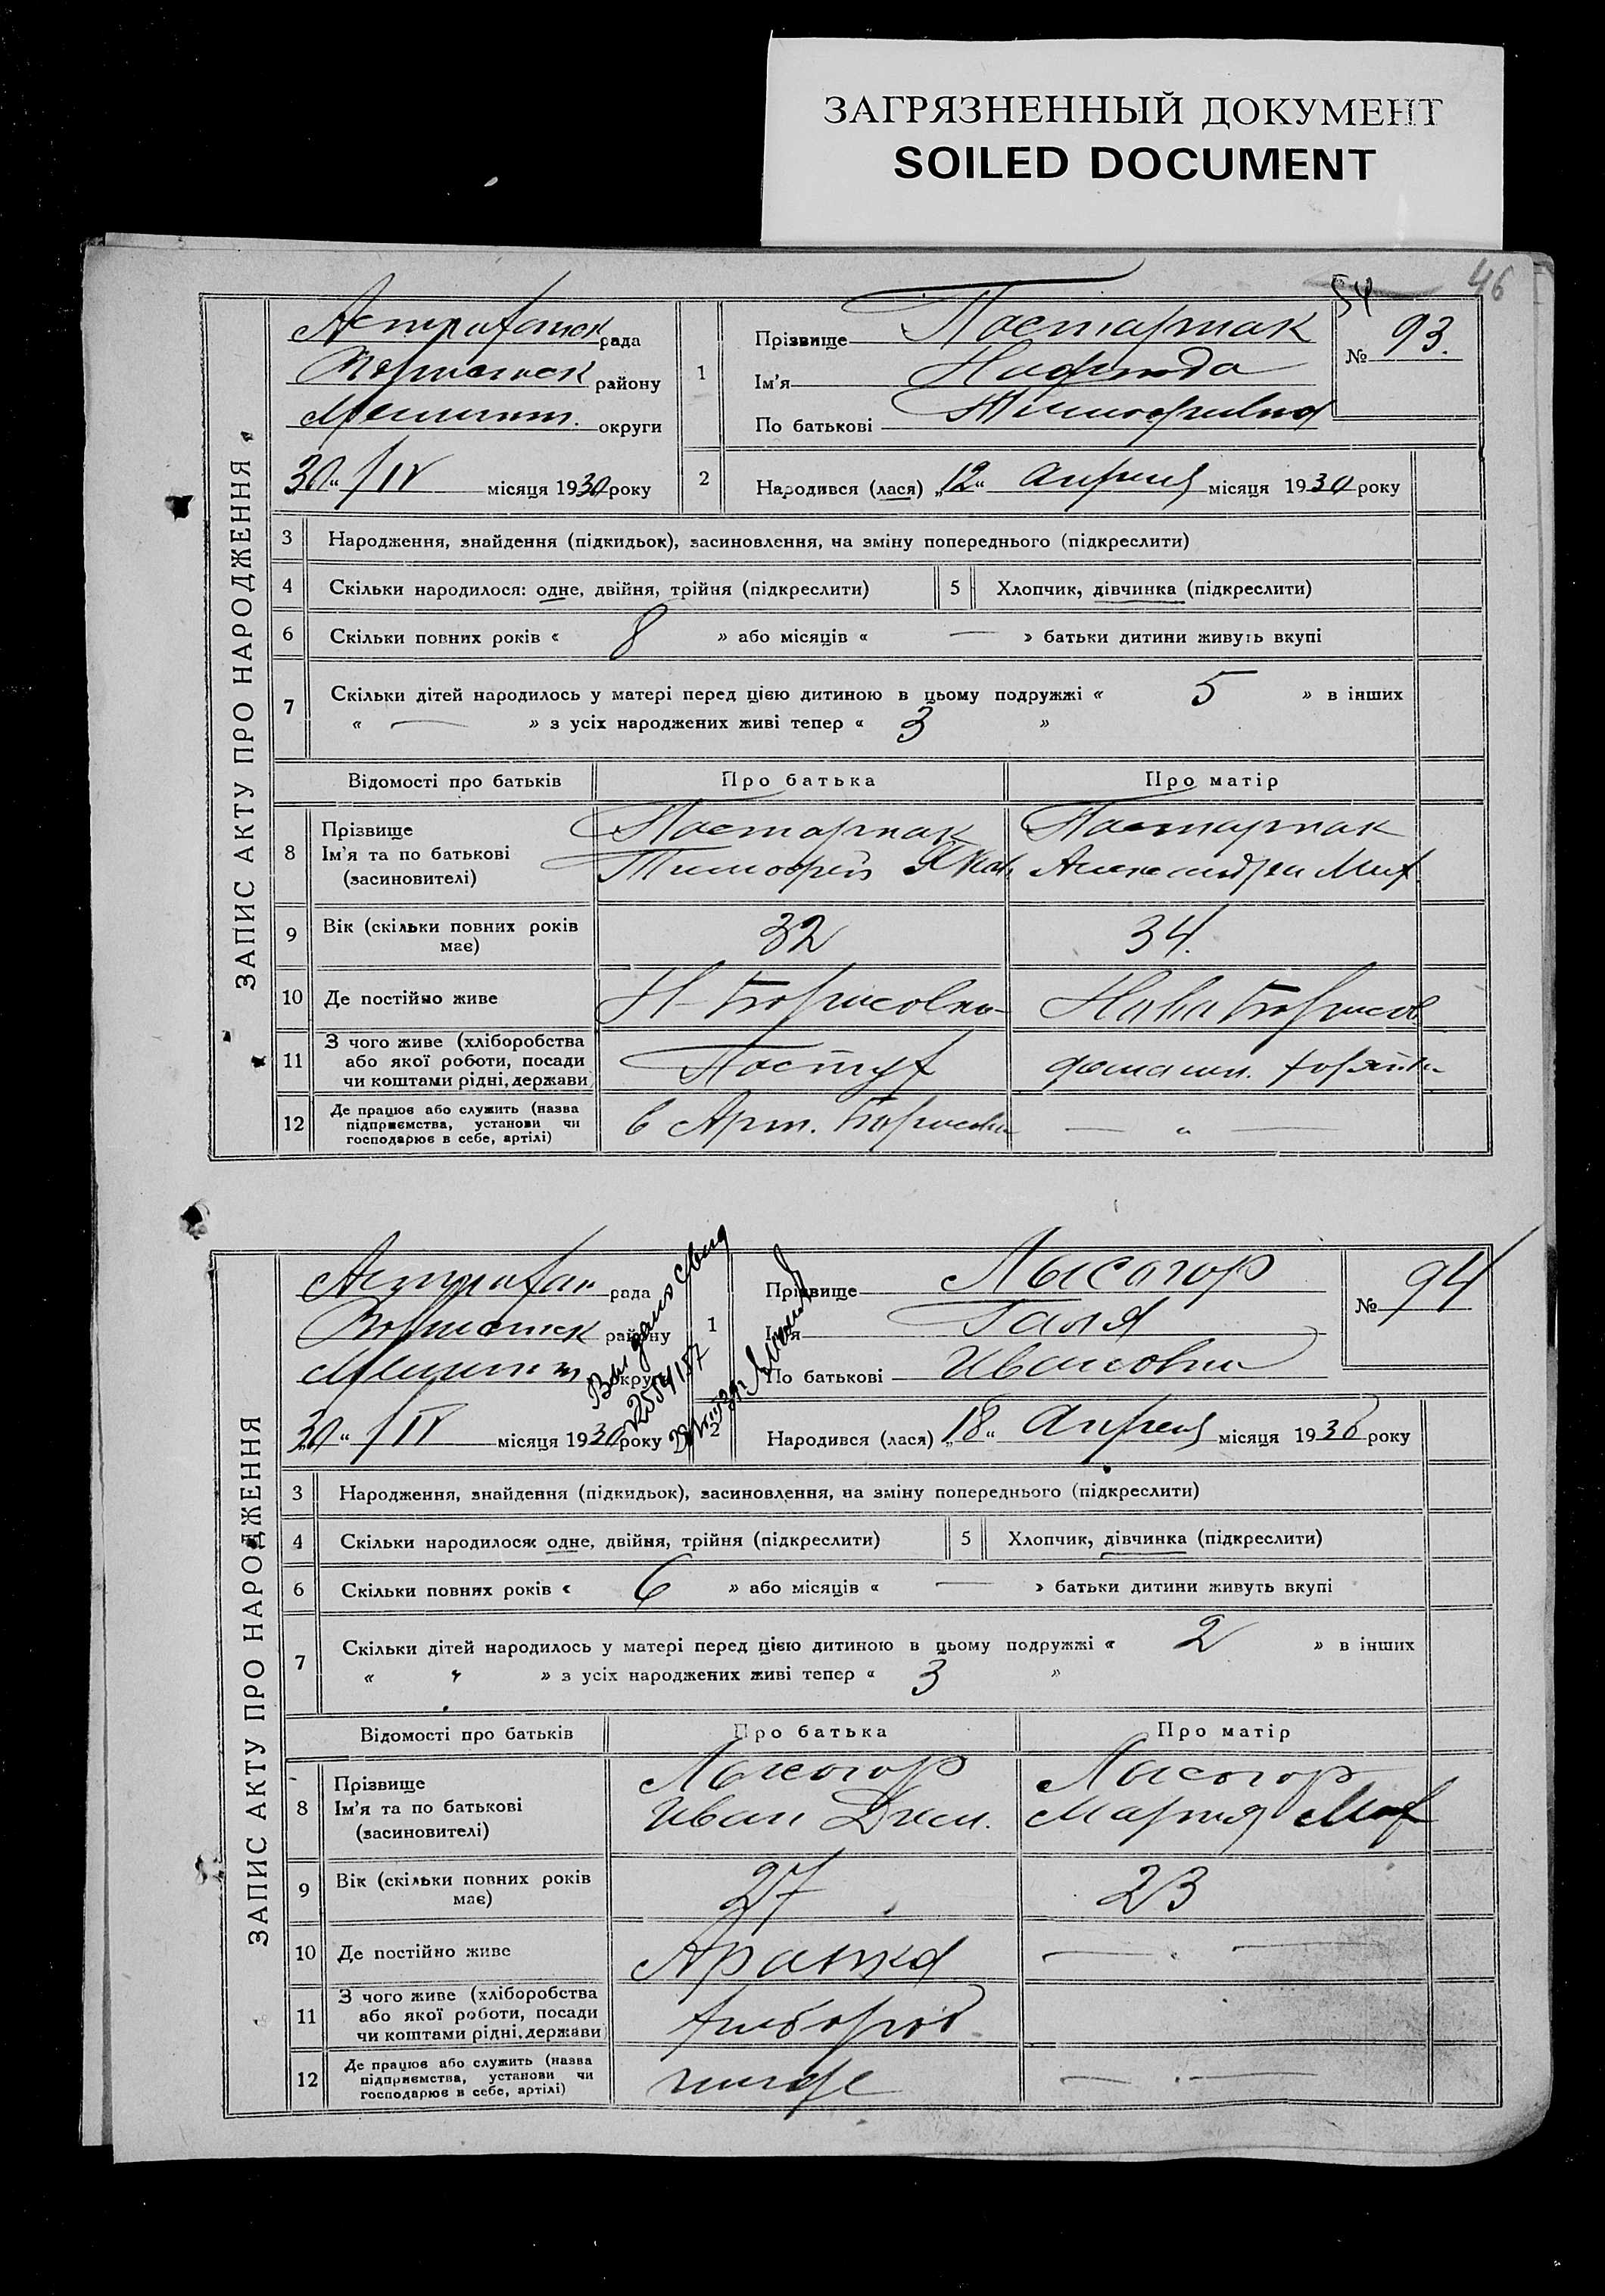 ЗАГРЯЗНЕННЫЙ ДОКУМЕНТ
SOILED DOCUMENT
46
54
ЗАПИС АКТУ ПРО НАРОДЖЕННЯ
Астраханск рада
району
Мелитоп. округи
30 " /IV місяця 1930 року
1
Прізвище Пастарнак
Ім'я Надежда
По батькові Тимофеивна
№ 93.
2 Народився (лася) „12" Апреля місяця 1930 року
3 Народження, знайдення (підкидьок), засиновлення, на зміну попереднього (підкреслити)
4 Скільки народилося: одне, двійня, трійня (підкреслити) 5 Хлопчик, дівчинка (підкреслити)
6 Скільки повних років « 8 » або місяців « — » батьки дитини живуть вкупі
7 Скільки дітей народилось у матері перед цією дитиною в цьому подружжі « 5 » в інших
« — » з усіх народжених живі тепер « 3 »
Відомості про батьків Про батька Про матір
8 Прізвище Ім'я та по батькові (засновителі)
Пастарнак Пастарнак
Тимофей Яков. Александра Мих.
9 Вік (скільки повних років має) 32 34.
10 Де постійно живе Н-Борисовка Нова Борисов.
11 З чого живе (хліборобства або якої роботи, посади чи коштами рідні, держави) Пастух домашн. хозяйка
12 Де працює або служить (назва підприємства, установи чи господарює в себе, артілі) в Арт. Борисовка — " —
ЗАПИС АКТУ ПРО НАРОДЖЕННЯ
Астрахан рада
району
Мелитоп округи
30 " /IV місяця 1930 року
1
Прізвище Лысогор
Ім'я Галя
По батькові Ивановна
№ 94
2 Народився (лася) „18" Апреля місяця 1930 року
3 Народження, знайдення (підкидьок), засиновлення, на зміну попереднього (підкреслити)
4 Скільки народилося: одне, двійня, трійня (підкреслити) 5 Хлопчик, дівчинка (підкреслити)
6 Скільки повних років « 6 » або місяців « — » батьки дитини живуть вкупі
7 Скільки дітей народилось у матері перед цією дитиною в цьому подружжі « 2 » в інших
« » з усіх народжених живі тепер « 3 »
Відомості про батьків Про батька Про матір
8 Прізвище Ім'я та по батькові (засиновителі)
Лысогор Лысогор
Иван Дем. Мария Мих
9 Вік (скільки повних років має) 27 23
10 Де постійно живе — . —
11 З чого живе (хліборобства або якої роботи, посади чи коштами рідні, держави) хлібороб
12 Де працює або служить (назва підприємства, установи чи господарює в себе, артілі) — . —